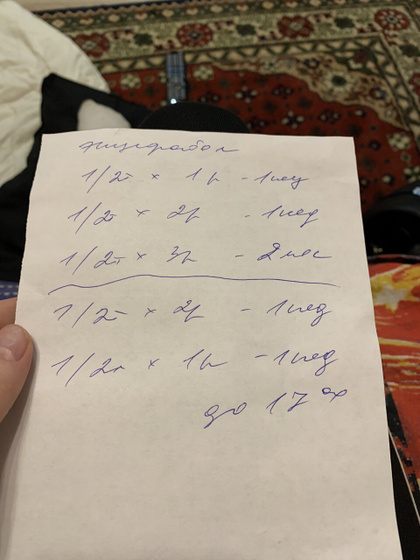 энцефабол
1/2т × 1р - 1нед
1/2т × 2р - 1нед
1/2т × 3р - 2мес
1/2т × 2р - 1нед
1/2т × 1р - 1нед
до 17 ºº